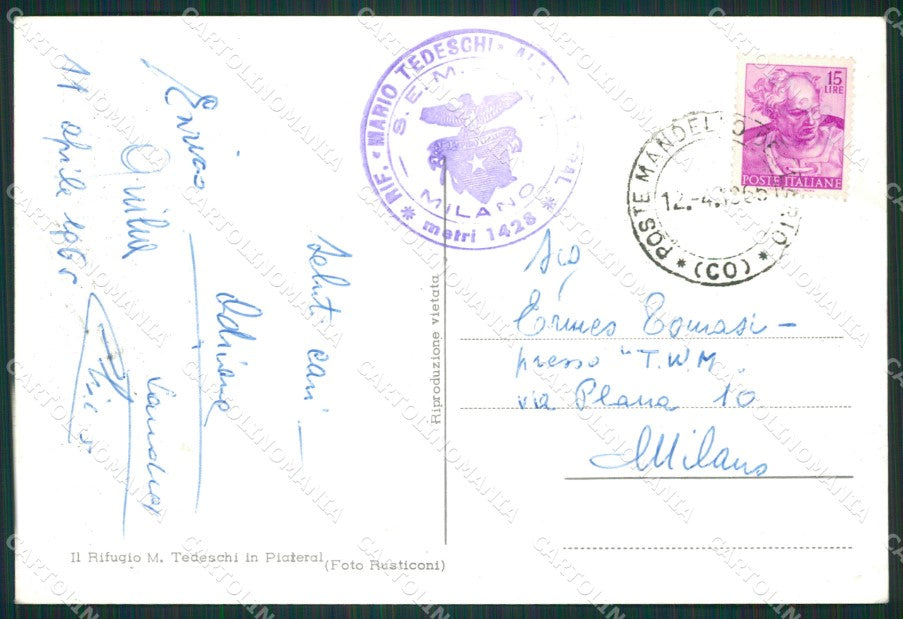 11 aprile 1965
Enrico
Adriano
Sandro
Saluti cari
RIF. "MARIO TEDESCHI"
S.E.M.
MILANO
* metri 1428 *
15
LIRE
POSTE ITALIANE
* POSTE MANDELLO
12.-4.1965
(CO) *
Sig
Ermes Tomasi -
presso "T.W.M.
via Plana 10
Milano
Riproduzione vietata
Il Rifugio M. Tedeschi in Piateral
(Foto Rusticoni)
CARTOLINOMANIA